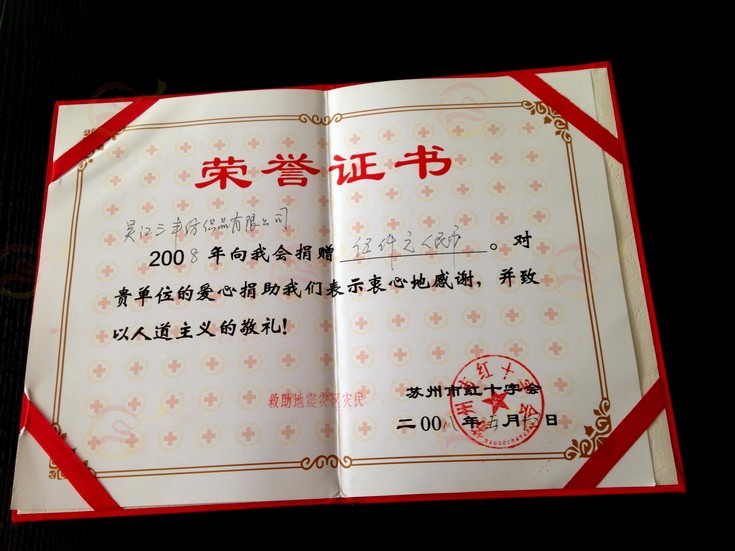 荣誉证书
吴江三丰纺织品有限公司
2008年向我会捐赠伍仟元人民币。对
贵单位的爱心捐助我们表示衷心地感谢，并致
以人道主义的敬礼！
救助地震灾区灾民
苏州市红十字会
二00八年五月 日